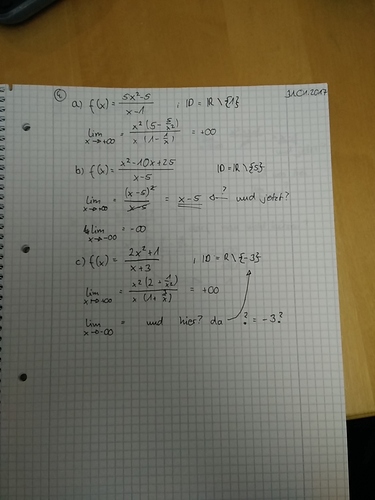 4. 31.01.2017
a) f(x) = (5x²-5)/(x-1) , ID = IR \ {1}
lim x→+∞ = (x² (5 - 5/x²))/(x (1 - 1/x)) = +∞
b) f(x) = (x²-10x+25)/(x-5) ID = IR \ {5}
lim x→+∞ = (x-5)²/(x-5) = x-5 ← ? und jetzt?
lim x→-∞ = -∞
c) f(x) = (2x²+1)/(x+3) , ID = R \ {-3}
lim x→+∞ = (x² (2 + 1/x²))/(x (1 + 3/x)) = +∞
lim x→-∞ = und hier? da ? = -3 ?